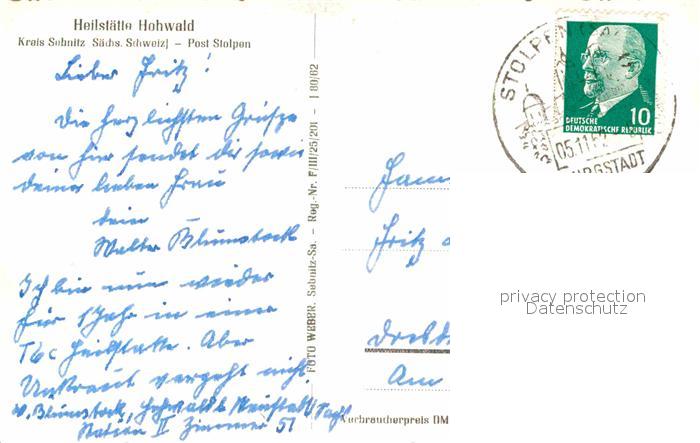 Heilstätte Hohwald
Kreis Sebnitz Sächs. Schweiz) – Post Stolpen
Lieber Fritz!
Die herzlichsten Grüße
von hier sendet dir sowie
deiner lieben Frau
dein
Walter Blumstock
Ich bin nun wieder
für 1 Jahr in einer
Tbc Heilstätte. Aber
Unkraut vergeht nicht.
W. Blumstock, Hohwald b Neustadt/Sachs
Station II Zimmer 51
FOTO WEBER, Sebnitz-Sa. – Reg.-Nr. F/III/25/201 – I 80/62
STOLPEN
05.11.62
BURGSTADT
10
DEUTSCHE
DEMOKRATISCHE REPUBLIK
Fam
Fritz
Dresd
Am
Verbraucherpreis DM
privacy protection
Datenschutz